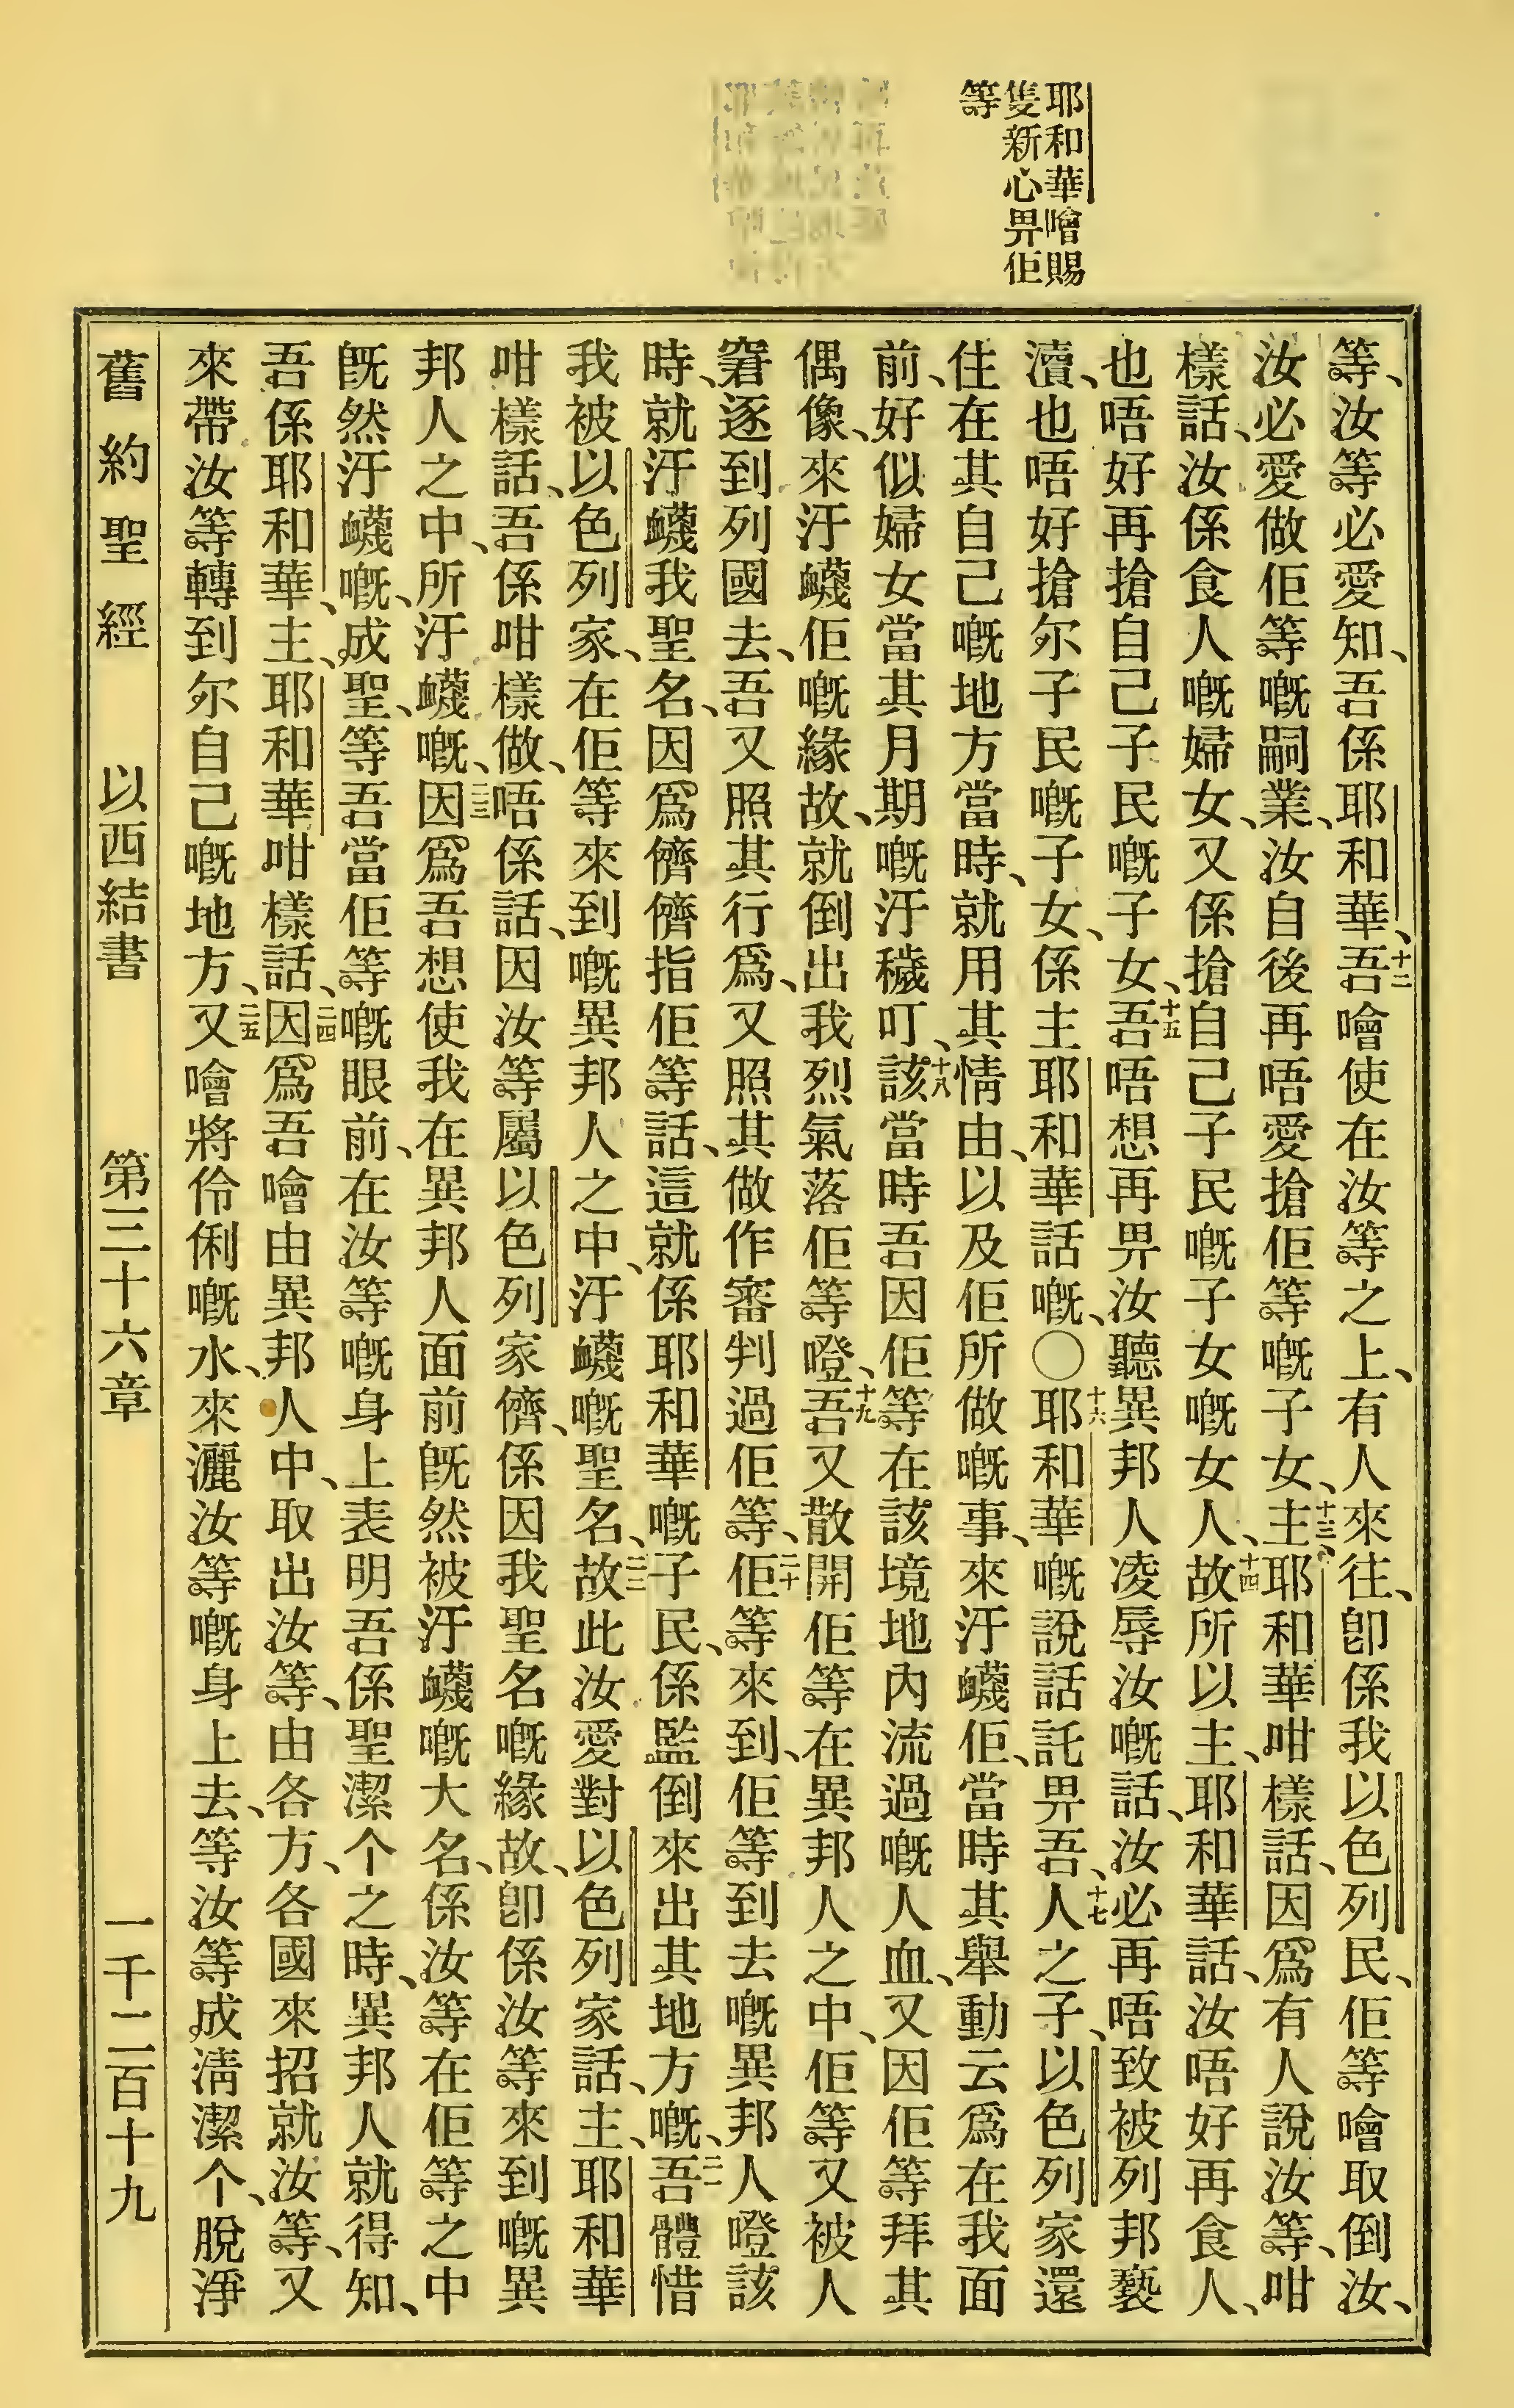 耶和華噲賜
隻新心畀佢
等
等、汝等必愛知、吾係耶和華、十二吾噲使在汝等之上、有人來往、卽係我以色列民、佢等噲取倒汝、
汝必愛做佢等嘅嗣業、汝自後再唔愛搶佢等嘅子女、十三主耶和華咁樣話、因爲有人說汝等、咁
樣話、汝係食人嘅婦女、又係搶自己子民嘅子女嘅女人、十四故所以主、耶和華話、汝唔好再食人、
也唔好再搶自己子民嘅子女、十五吾唔想再畀汝聽異邦人凌辱汝嘅話、汝必再唔致被列邦褻
瀆、也唔好搶尔子民嘅子女、係主耶和華話嘅、〇十六耶和華嘅說話託畀吾、十七人之子、以色列家還
住在其自己嘅地方當時、就用其情由、以及佢所做嘅事、來汙衊佢、當時其舉動云爲在我面
前、好似婦女當其月期嘅汙穢叮、十八該當時吾因佢等在該境地內流過嘅人血、又因佢等拜其
偶像、來汙衊佢嘅緣故、就倒出我烈氣落佢等噔、十九吾又散開佢等在異邦人之中、佢等又被人
窘逐到列國去、吾又照其行爲、又照其做作審判過佢等、二十佢等來到、佢等到去嘅異邦人噔該
時、就汙衊我聖名、因爲儕儕指佢等話、這就係耶和華嘅子民、係監倒來出其地方嘅、二一吾體惜
我被以色列家、在佢等來到嘅異邦人之中、汙衊嘅聖名、二二故此汝愛對以色列家話、主、耶和華
咁樣話、吾係咁樣做、唔係話、因汝等屬以色列家儕、係因我聖名嘅緣故、卽係汝等來到嘅異
邦人之中、所汙衊嘅、二三因爲吾想使我在異邦人面前旣然被汙衊嘅大名、係汝等在佢等之中
旣然汙衊嘅、成聖、等吾當佢等嘅眼前、在汝等嘅身上表明吾係聖潔个之時、異邦人就得知、
吾係耶和華、主、耶和華咁樣話、二四因爲吾噲由異邦人中、取出汝等、由各方、各國來招就汝等、又
來帶汝等轉到尔自己嘅地方、二五又噲將伶俐嘅水、來灑汝等嘅身上去、等汝等成淸潔个、脫淨
舊約聖經　以西結書　第三十六章　一千二百十九